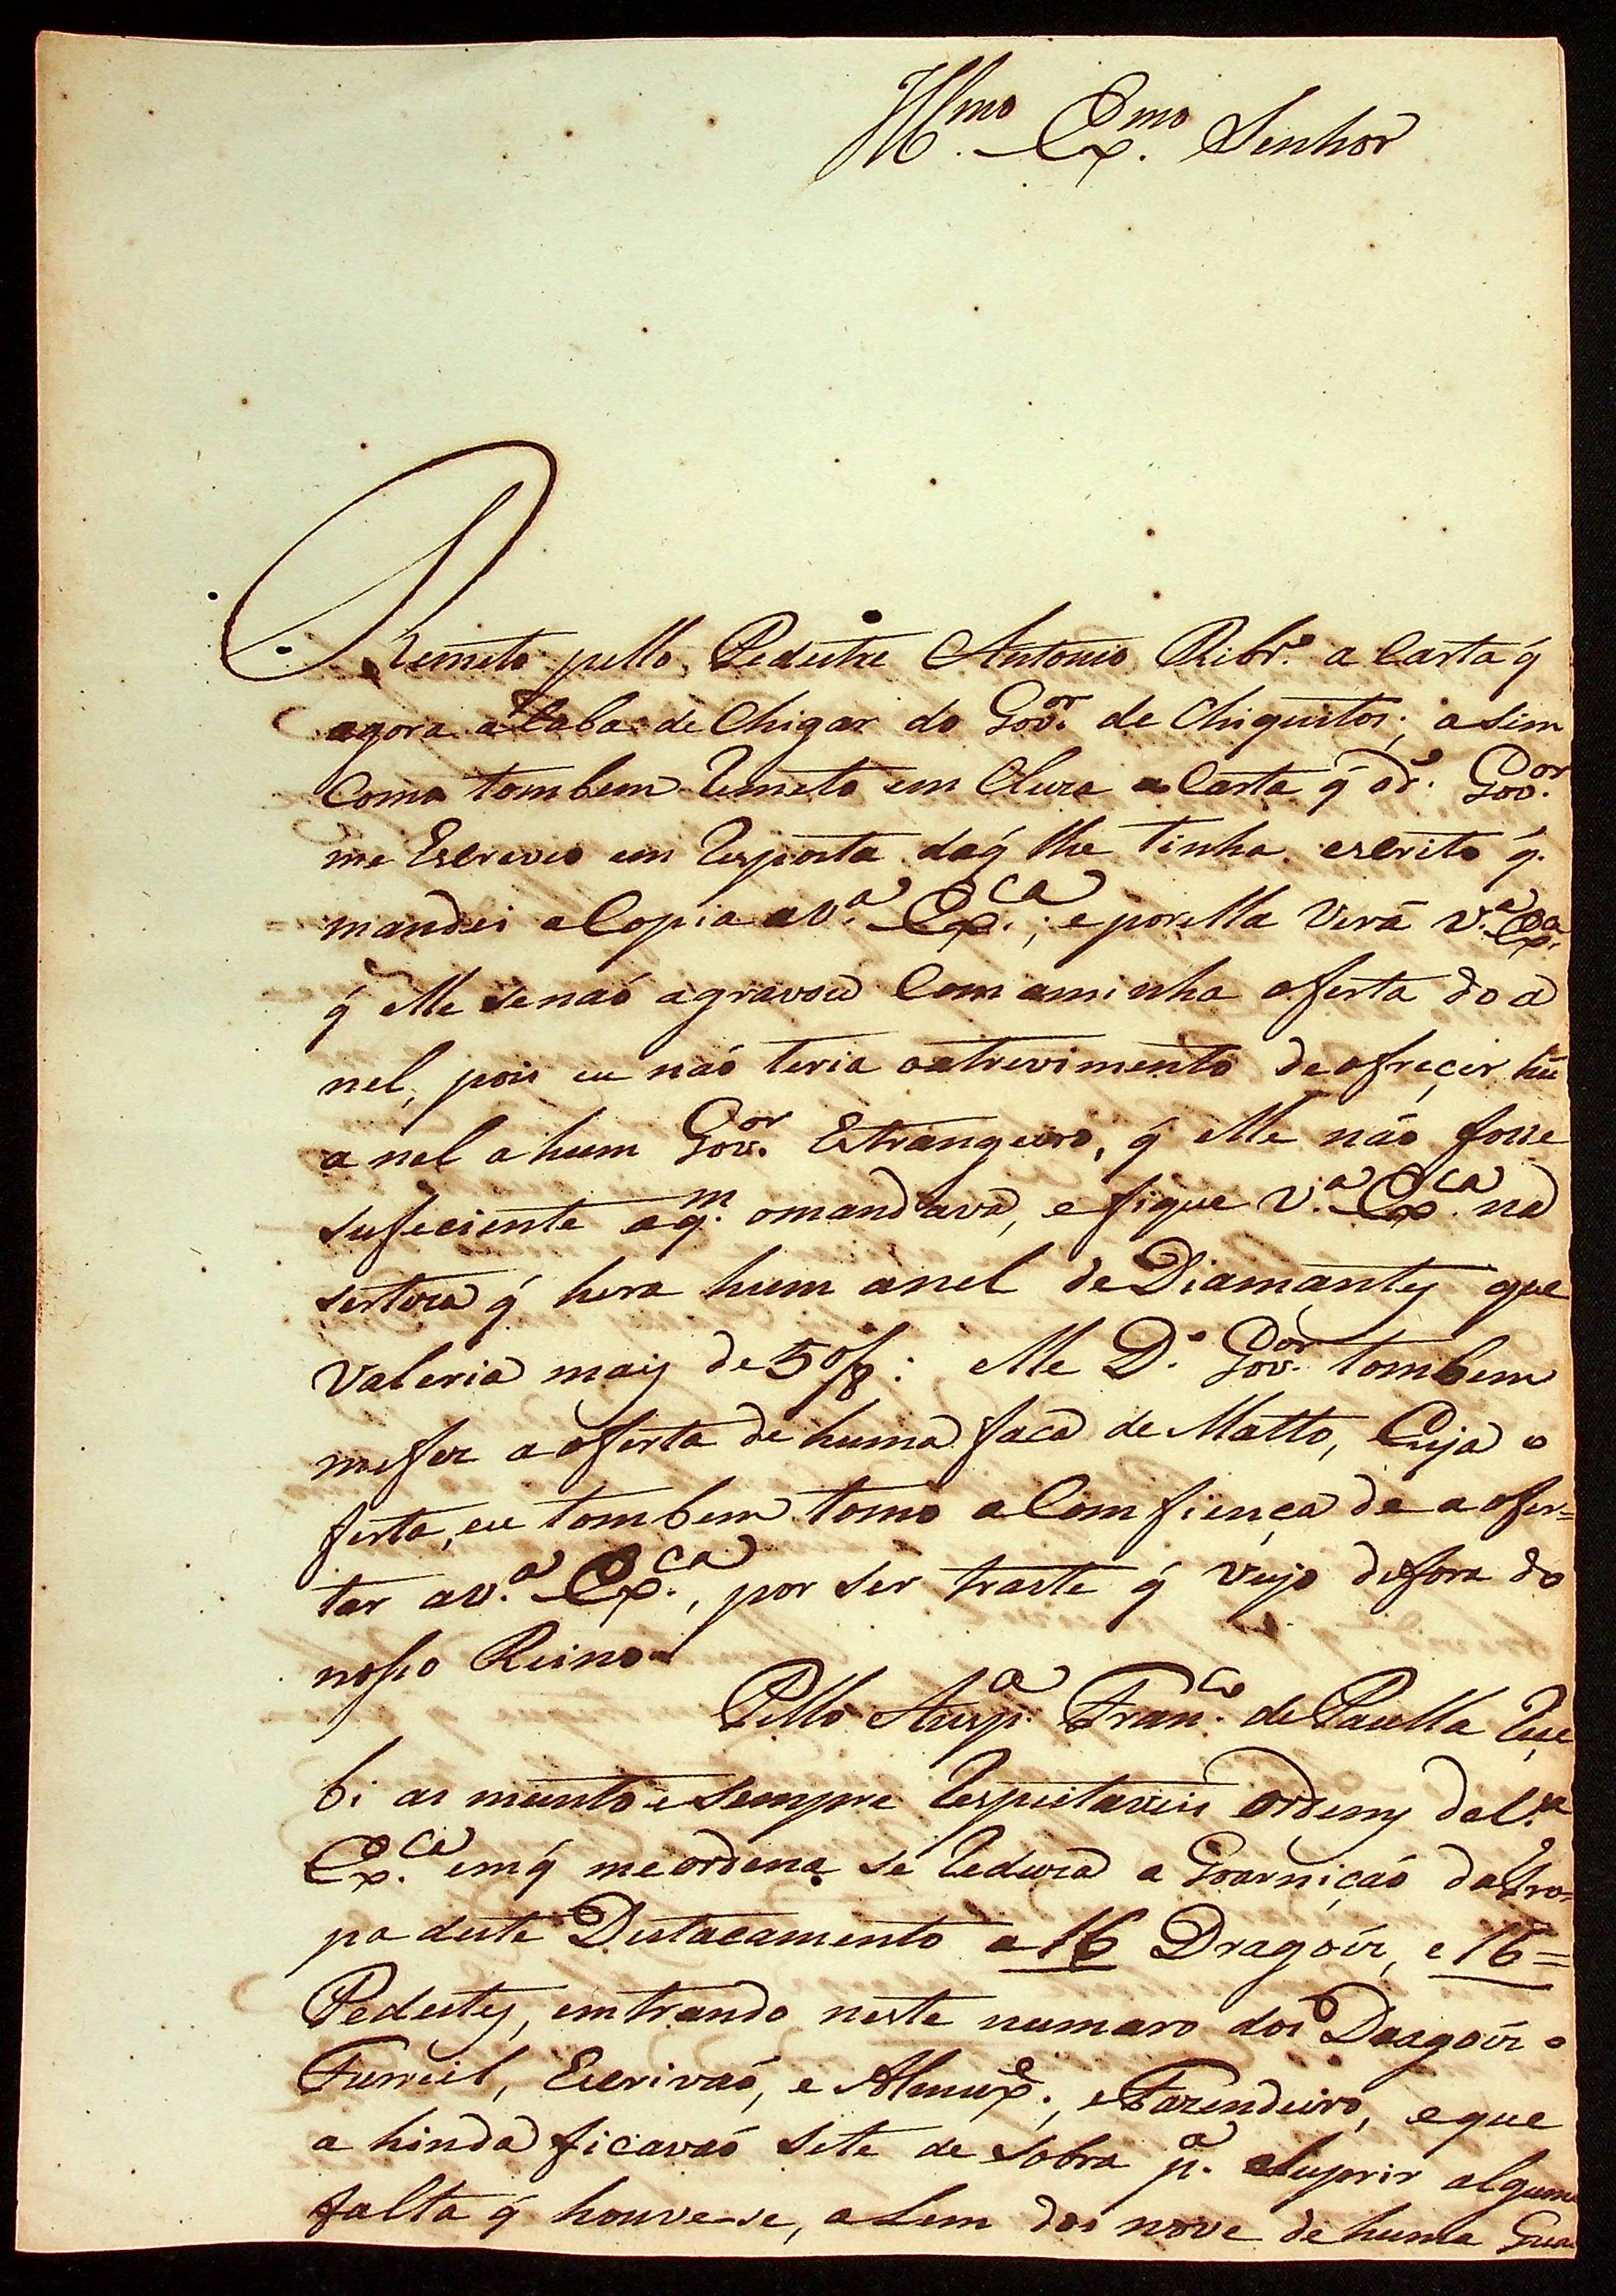 Ill.mo Ex.mo Senhor
Remeto pello Pedestre Antonio Ribr.o a Carta q̃
agora a Caba de Chigar do Gov.or de Chiquitos; asim
Como tombem Remeto em Cluza a Carta q̃ o d.o Gov.or
me Escreveo em Resposta daq̃ lhe tinha escrito q̃.
mandei a Copia a V.a Ex.ca; e por ella Verá V.a Ex.ca
q̃ elle senaó agravou Com aminha oferta do a
nel, pois eu náo teria oatrevimento de ofreçer hũ
a nel a hum Gov.or Estrangeiro, q̃ elle náo fosse
sufeciente aq.m omandava, e fique V.a Ex.ca na
serteza q̃ hera hum anel de Diamantes que
Valeria mais de 50/8: elle D.o Gov.or tombem
mefez a oferta de huma faca de Matto, Cuja o
ferta, eu tombem tomo a Comfiença de a ofer=
tar a V.a Ex.ca, por ser traste q̃ vejo defora do
nosso Reino
Pello Ansp.a Fran.co de Paulla Reçe
bi as munto e sempre Respeitaveis Ordens de V.a
Ex.ca emq̃ me ordena se Reduza a Goarniçáo da Tro=
pa deste Destacamento a 16 Dragóis, e 16=
Pedestes, emtrando neste numaro dos Dragóis o
Furriel, Escriváo, e Almux.e, e Fazendeiro, e que
a hinda ficaváo sete de sobra p.a Suprir alguma
falta q̃ houve-se, a Lem dos nove de huma Guar